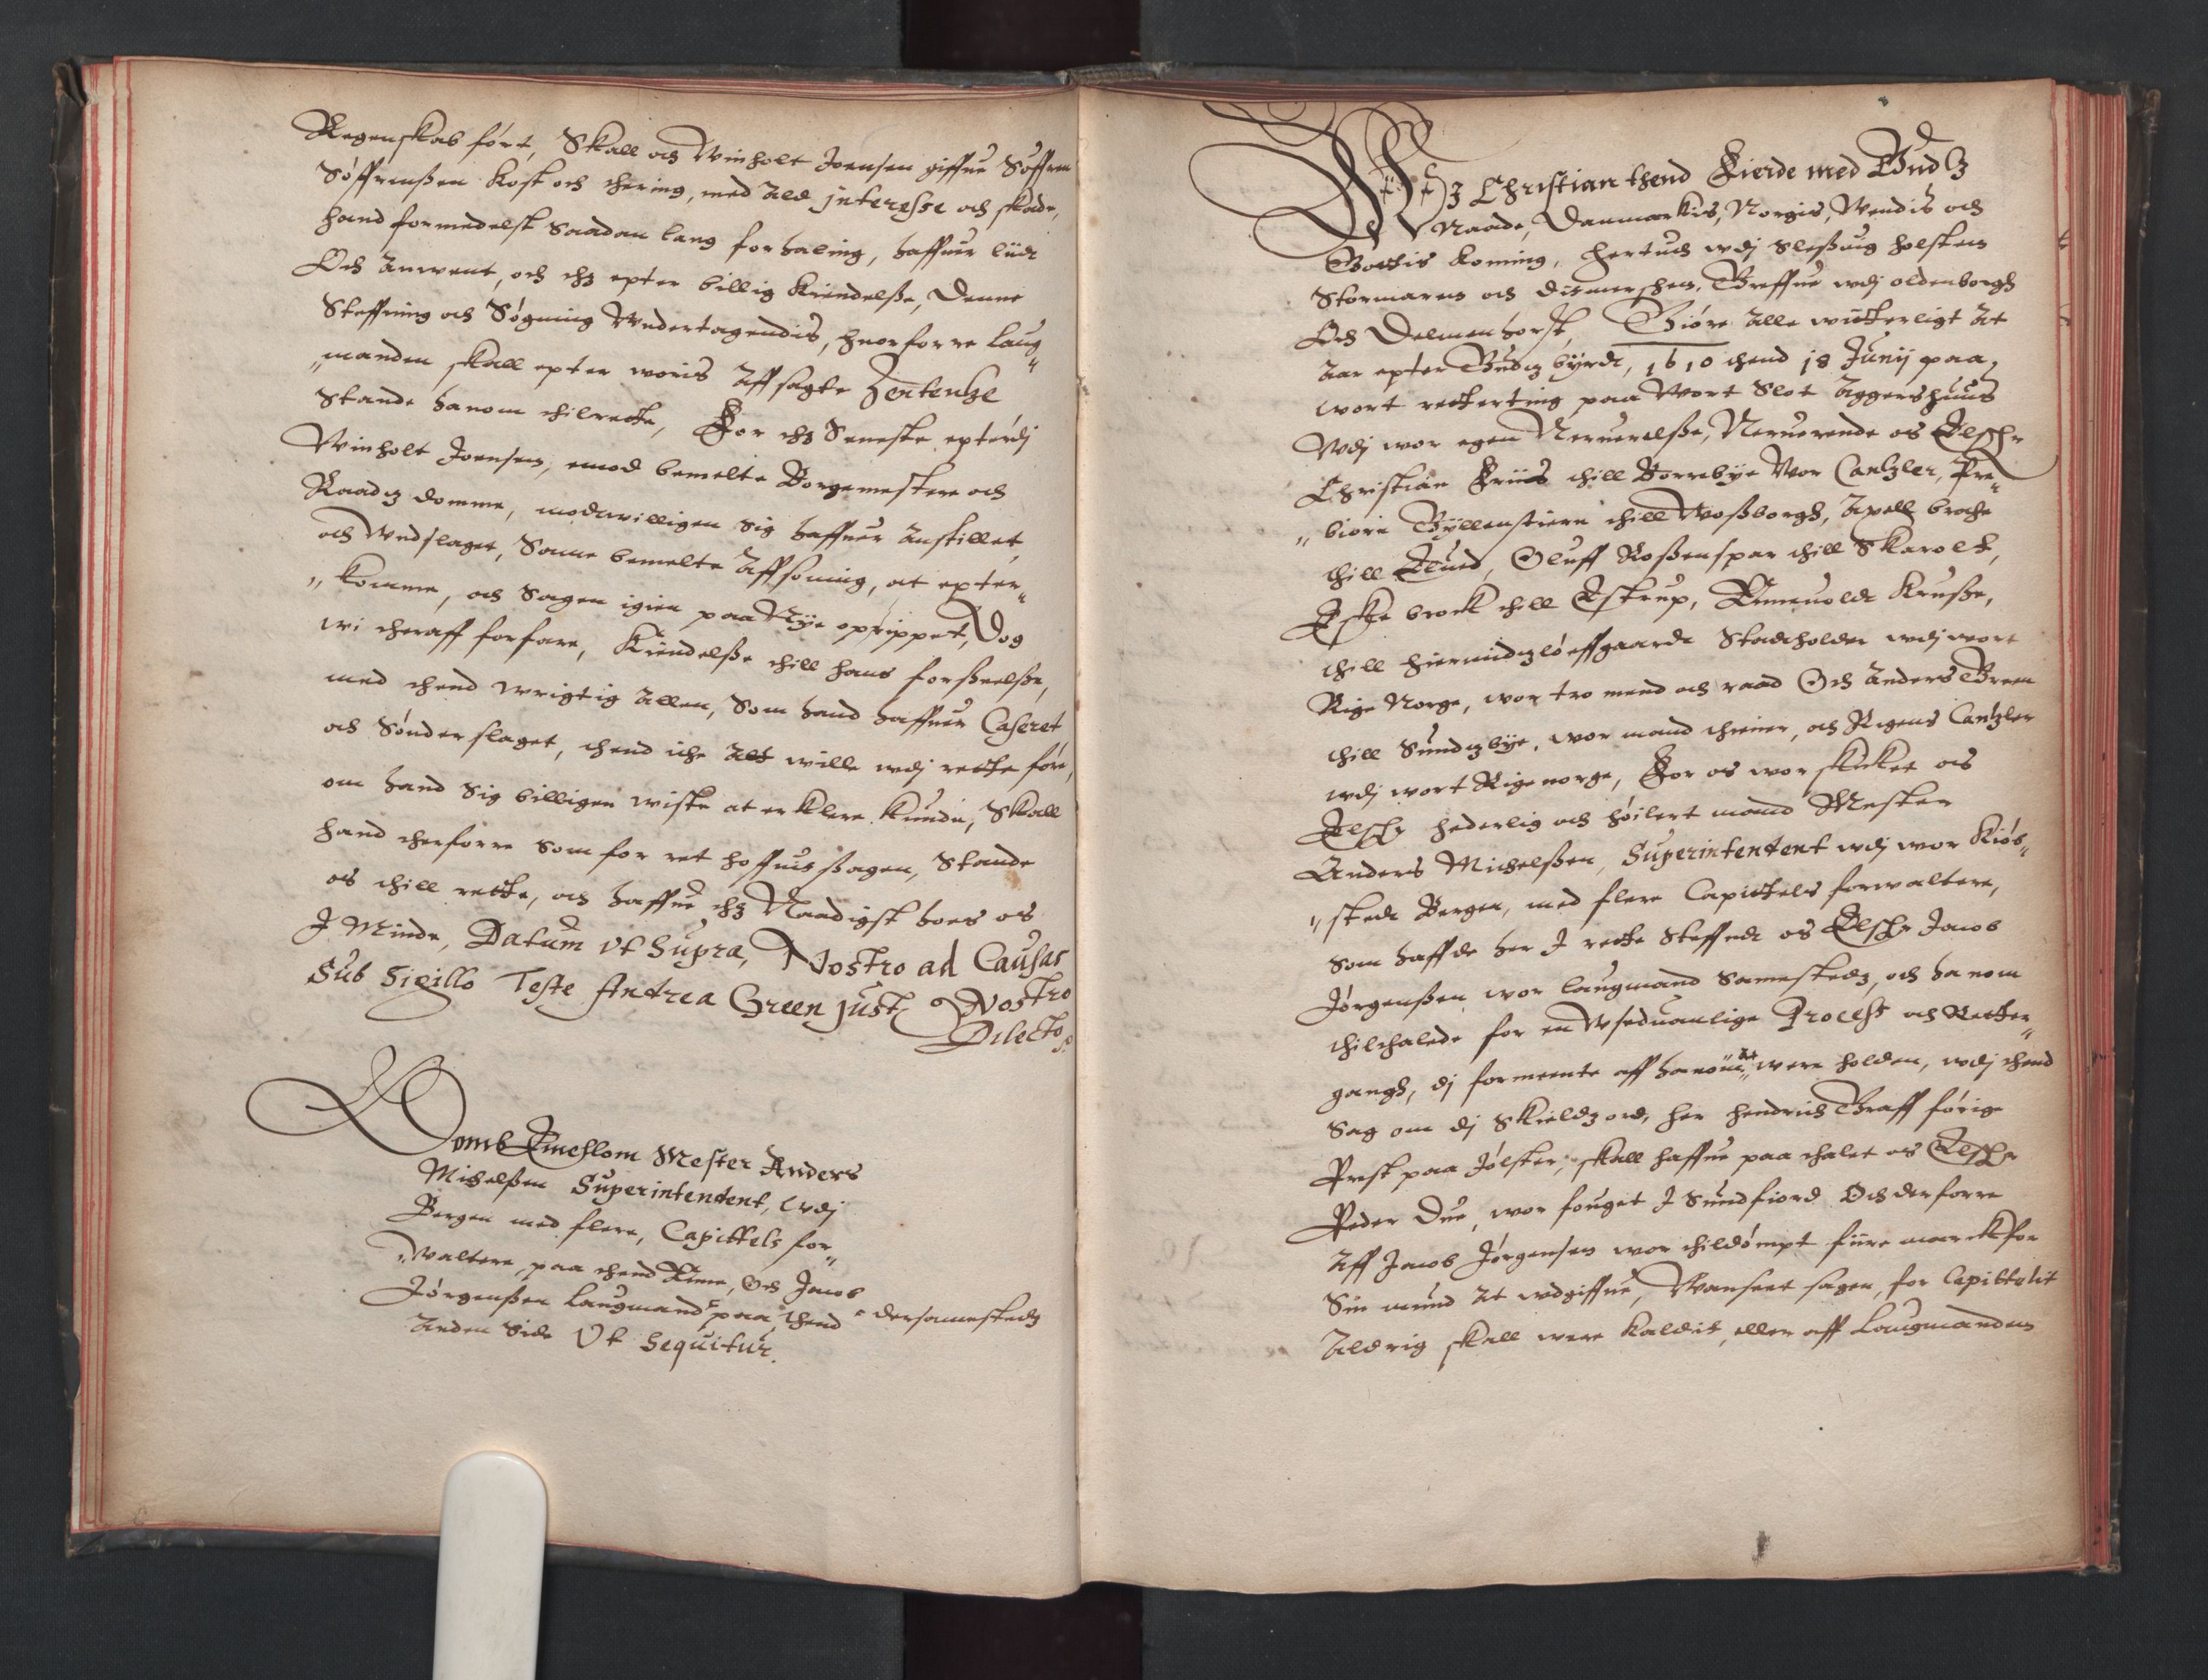 Regenskabført, Skall och Winholt Joensen giffue Søffren
Søffrenßen kost och thering, med all jnteresse och skade,
hand formedelst Saadan lang forhaling, haffuer liidt
Och Anwent, och thz epter billig kiendelße, Denne
Steffning och Søgning Wndertagendis, huorforre laug„
„manden skall epter woris Affsagte Zententze
Stande hanom thilrette, For thz Seneste epterdj
Winholt Joensen, emod bemelte Borgemestere och
Raadtz domme, modtwilligen Sig haffuer Anstillet,
och Wndslaget, Samme bemelte Affsoning, at epter„
„komme, och Sagen igien paa Nye oprippet, Dog
wi theraff forfare, Kiendelße thill hans forßeelße,
med thend wrigtig Allen, Som hand haffuer Caseret
och Sønderslaget, thend iche Alt wille wdj rette føre,
om hand Sig billigen wiste at erklere kunde, Skall
hand therforre Som for ret hoffuitßagen, Stande
os thill rette, och haffue thz Naadigst hoes os
J Minde, Datum vt Supra, Nostro ad Causas
Sub Sigillo Teste Andrea Green just: Nostro
Dilecto
Domb Emellom Mester Anders
Michelßen Superintendent, wdj
Bergen med flere, Capittels for„
„waltere, paa thend Eene, Och Jacob
Jørgenßen laugmand paa thend dersamestedtz
Anden Side Vt Sequitur.
Wii Christian thend Fierde med Gudtz
Naade, Danmarkis, Norgis, Wendis och
Gottis koning, hertuch wdj Sleßuig holsten
Stormaren och Ditmerschen, Greffue wdj oldenborgh
Och Delmenhorst, Giøre Alle witterligt At
Aar epter Gudtz byrdt, 1610 thend 18 Junij paa
wort retterting paa Wort Slot Aggershuus
Wdj wor egen Neruerelße, Neruerende os Elschr
Christian Friis thill Borrebye Wor Cantzler, Pre„
„biorn Gyllenstiern thill Woßborgh, Axell brache
thill Elued, Oluff Roßenspar thill Skarolt,
Eske brock thill Estrup, Enneuoldt Kruße,
thill hiermidtzløeffgaardt Stadtholder wdj wort
Rige Norge, wor tro mend och raad Och Anders Green
thill Sundtzbye, wor mand thiener, och Rigens Cantzler
wdj wort Rige norge, For os wor skicket os
Elschr hederlig och høilert mand Mester
Anders Michelßen, Superintendent wdj wor kiøb„
„stedt Bergen, med flere Capittels forwaltere,
Som haffde her J rette Steffndt os Elschr Jacob
Jørgenßen wor laugmand Samestedtz, och hanom
thilthalede for en Wseduanlige Process och Retter„
gangh, dj formeente aff hanom at were holden, wdj thend
Sag om dj Skieldtzord, her hendrich Graff førige
Prest paa Jølster, skall haffue paa thalet os Elschr
Peder Due, wor fouget J Sundfiord Och derforre
Aff Jacob Jørgensen wor thildømpt fiire marck for
Sin mund At wdgiffue, Wanseet sagen, for Capittelit
Aldrig skall were kaldit, eller aff Laugmanden